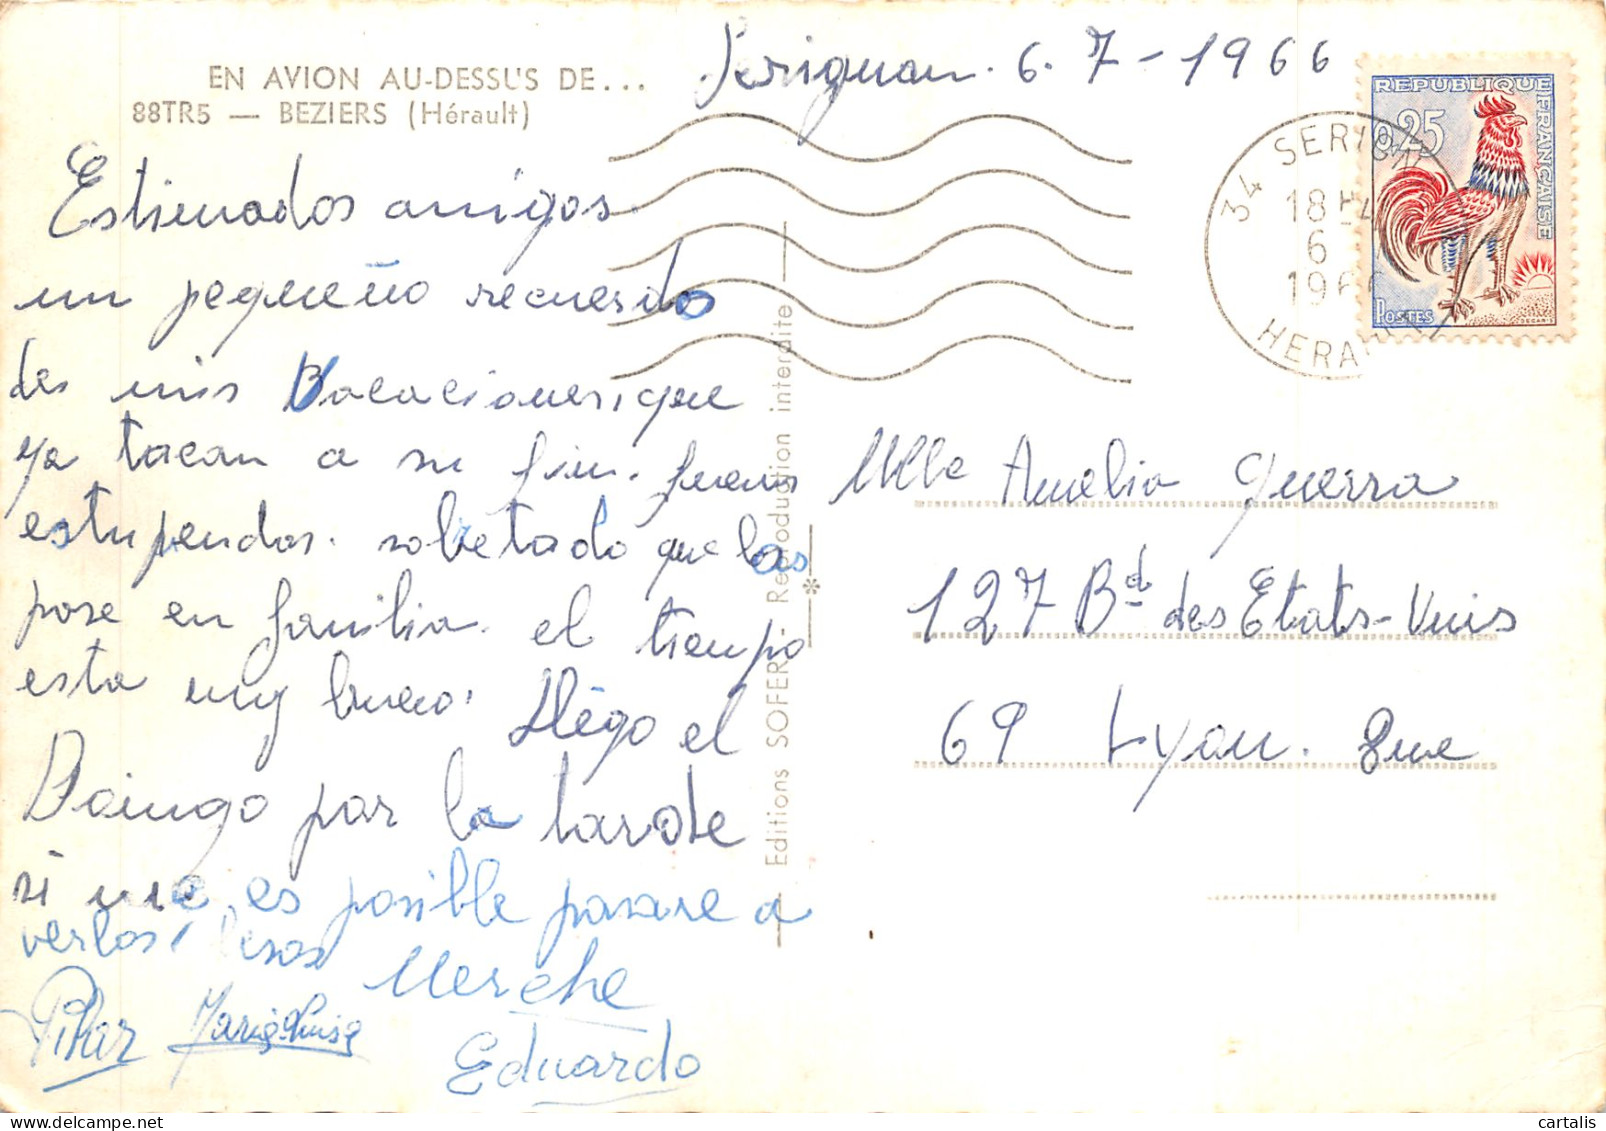 EN AVION AU-DESSUS DE...
88TR5 — BEZIERS (Hérault)
Serignan. 6. 7 - 1966
REPUBLIQUE FRANÇAISE
0,25
POSTES
DECARIS
34 SERIGNAN
18 H
6
1966
HERAULT
Estimados amigos.
un pequeño recuerdo
des mis Bacaciones, que
ya tocan a su fin. fueron
estupendos. sobretodo que los
pase en familia. el tiempo
esta muy bueno. Llégo el
Doingo por la tarde
si me es posible pasare a
verlos, besos Merche
Pilar Maria Luisa
Eduardo
Editions SOFER - Reproduction interdite
Mlle Amelia Guerra
127 Bd des Etats-Unis
69 Lyon. 8me
cartalis